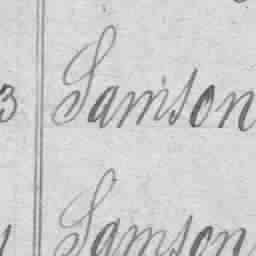 3 Samson
Samson